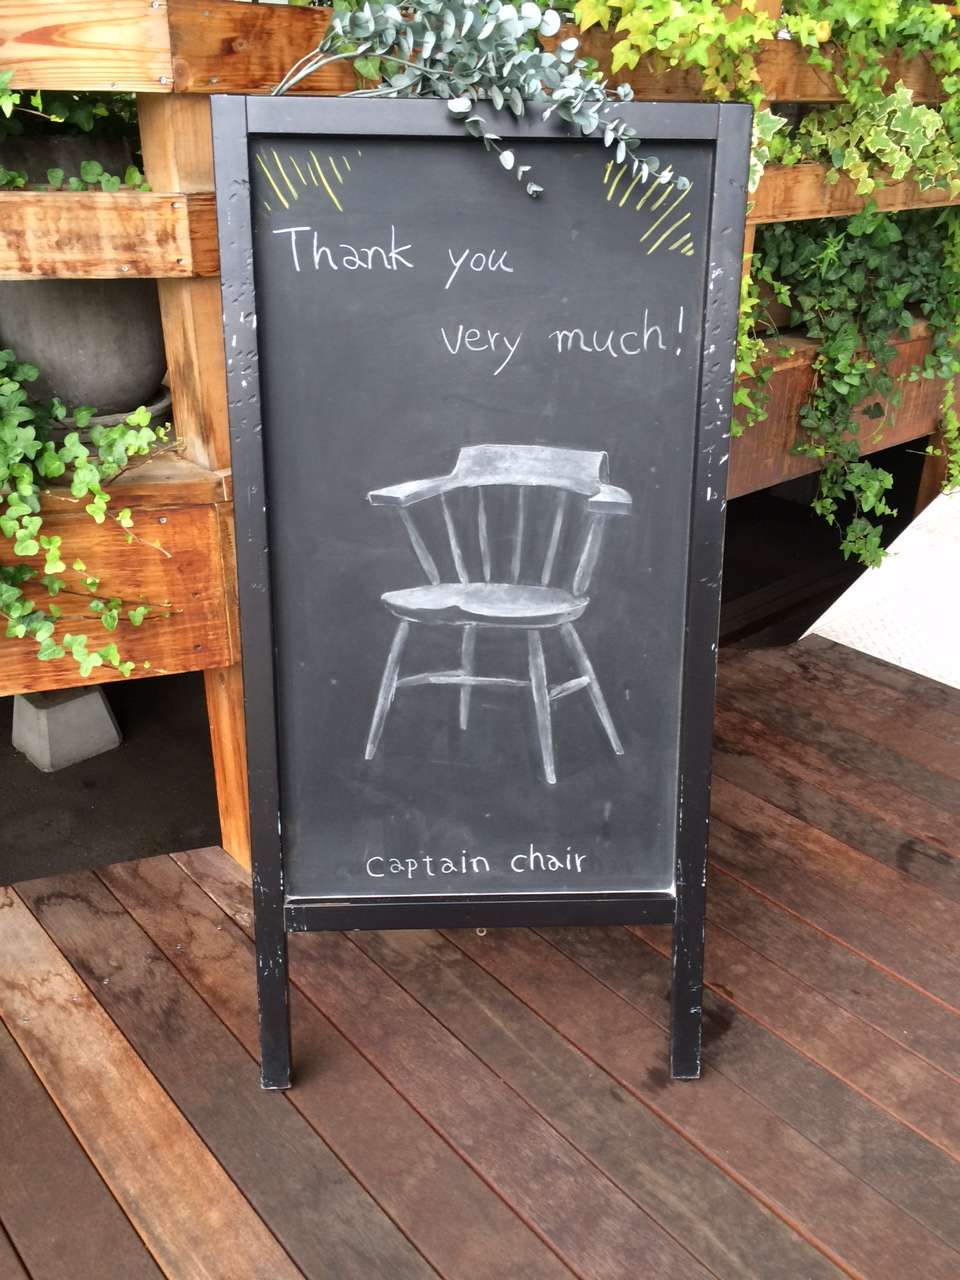 Thank you
very much!
captain chair